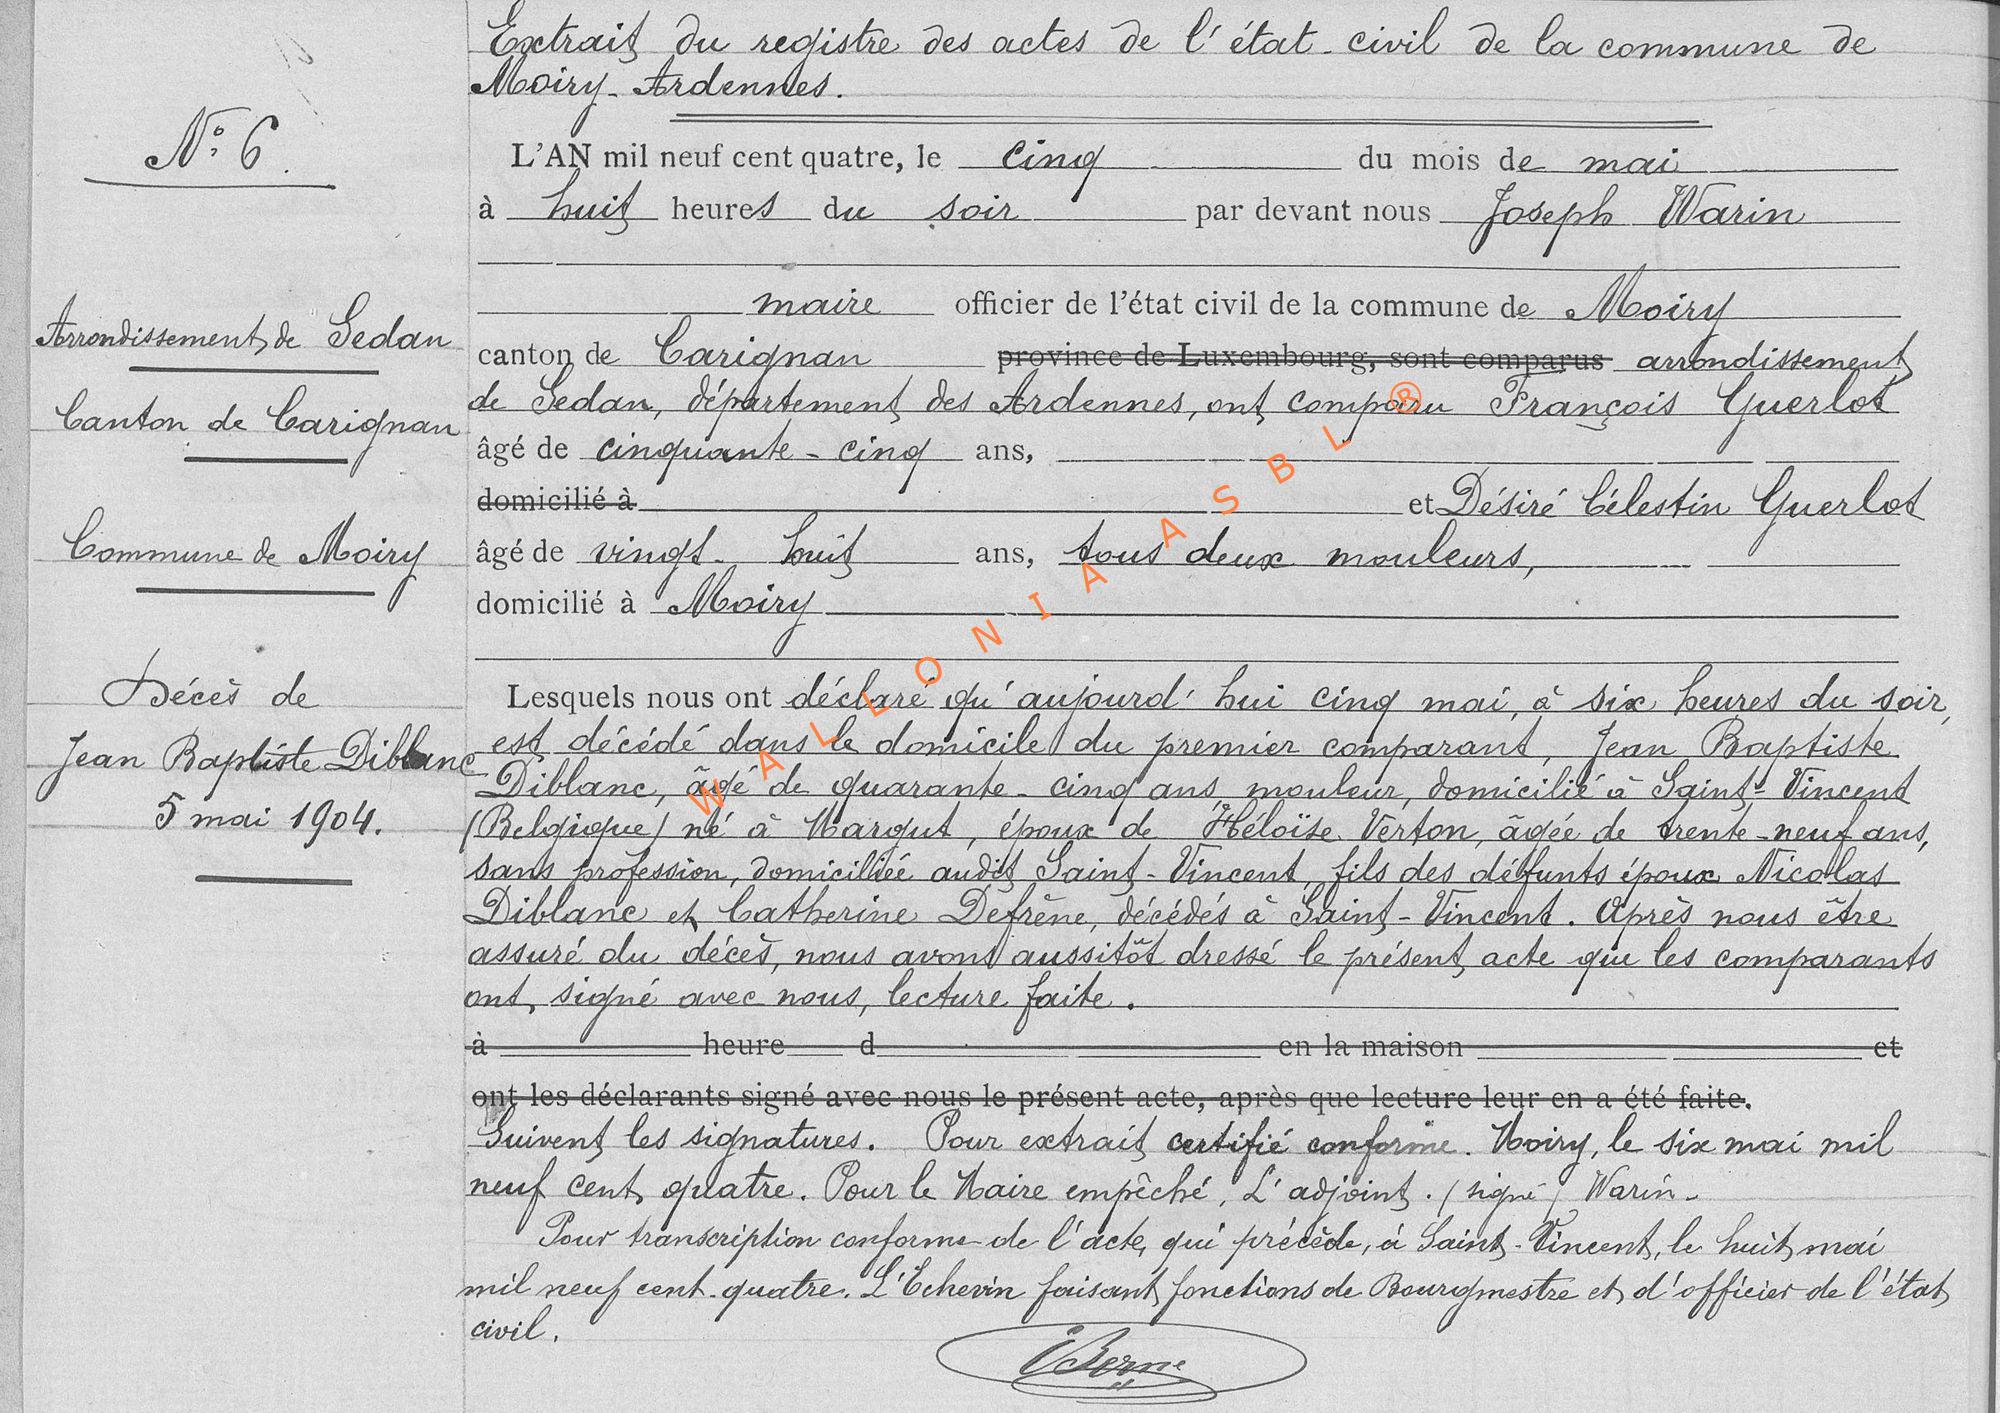 Extrait du registre des actes de l'état-civil de la commune de
Moiry-Ardennes.
N° 6.
L'AN mil neuf cent quatre, le cinq du mois de mai
à huit heures du soir par devant nous Joseph Warin
maire officier de l'état civil de la commune de Moiry
canton de Carignan province de Luxembourg, sont comparus arrondissement
de Sedan, département des Ardennes, ont comparu François Guerlot
âgé de cinquante-cinq ans,
domicilié à et Désiré Célestin Guerlot
âgé de vingt-huit ans, tous deux mouleurs,
domicilié à Moiry
Arrondissement de Sedan
Canton de Carignan
Commune de Moiry
Décès de
Jean Baptiste Diblanc
5 mai 1904.
Lesquels nous ont déclaré qu'aujourd'hui cinq mai, à six heures du soir,
est décédé dans le domicile du premier comparant, Jean Baptiste
Diblanc, âgé de quarante-cinq ans, mouleur, domicilié à Saint-Vincent
(Belgique) né à Margut, époux de Héloïse Verton, âgée de trente-neuf ans,
sans profession, domiciliée audit Saint-Vincent, fils des défunts époux Nicolas
Diblanc et Catherine Defrène, décédés à Saint-Vincent. Après nous être
assuré du décès, nous avons aussitôt dressé le présent acte que les comparants
ont signé avec nous, lecture faite.
à heure d en la maison et
ont les déclarants signé avec nous le présent acte, après que lecture leur en a été faite.
Suivent les signatures. Pour extrait certifié conforme. Moiry, le six mai mil
neuf cent quatre. Pour le Maire empêché, L'adjoint. (signé) Warin-
Pour transcription conforme de l'acte, qui précède, à Saint-Vincent, le huit mai
mil neuf cent-quatre. L'Echevin faisant fonctions de Bourgmestre et d'officier de l'état
civil.
WALLONIA ASBL ®